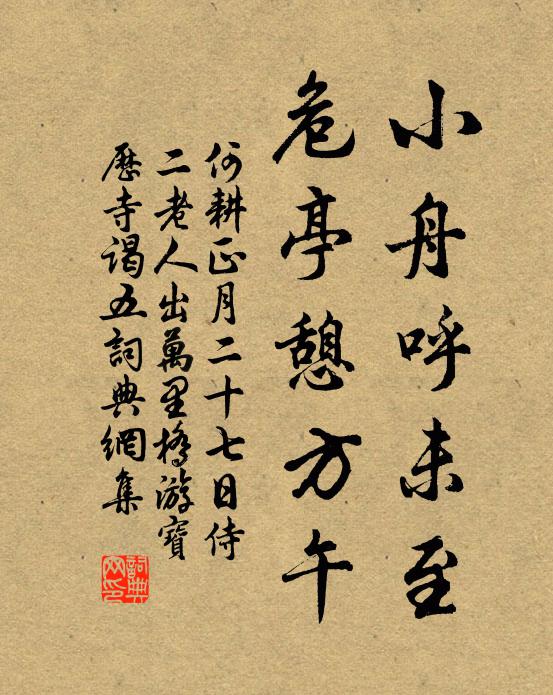 小舟呼未至
危亭憩方午
何耕正月二十七日侍
二老人出萬里橋游寶
曆寺謁五詞典網集
詞典網印